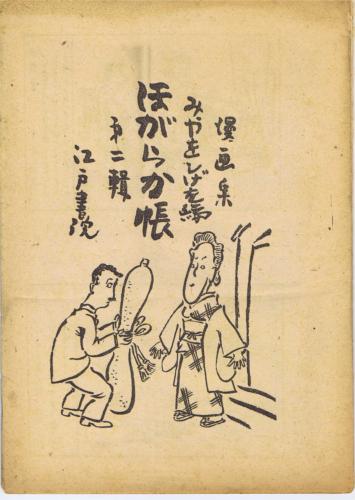 漫画集
みやをしげを編
ほがらか帳
第二輯
江戸書院